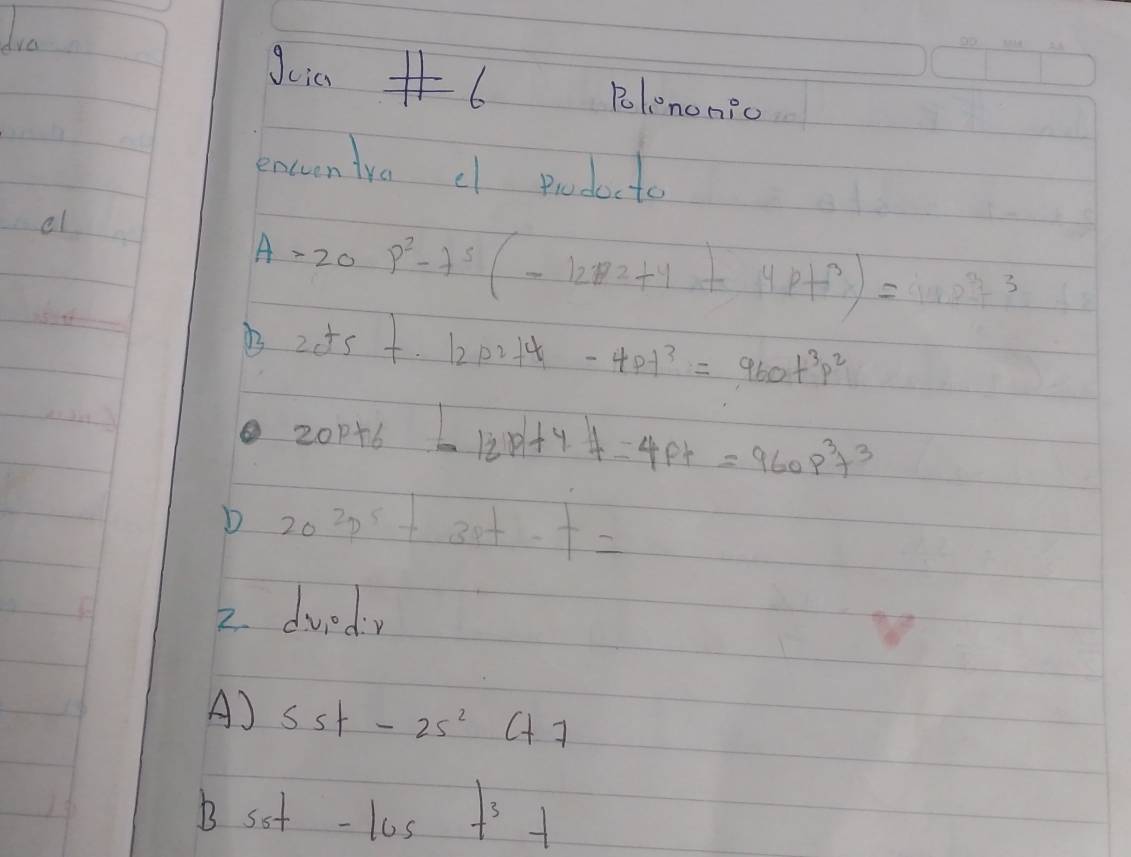 dra
Guia # 6 Polinonio
encuentra el producto
el
A - 20 p² - t⁵ ( - 12p2 + 4 + 4pt³) =
B 20t5 + 12p2t4 - 4pt³ = 960t³p²
20pt6 - 12pt4 + - 4pt = 960p³t³
D 20 ²p⁵ + 3pt - t =
2. dividir
A) 5st - 2s² (t 7
B 5st - 10s t³ t